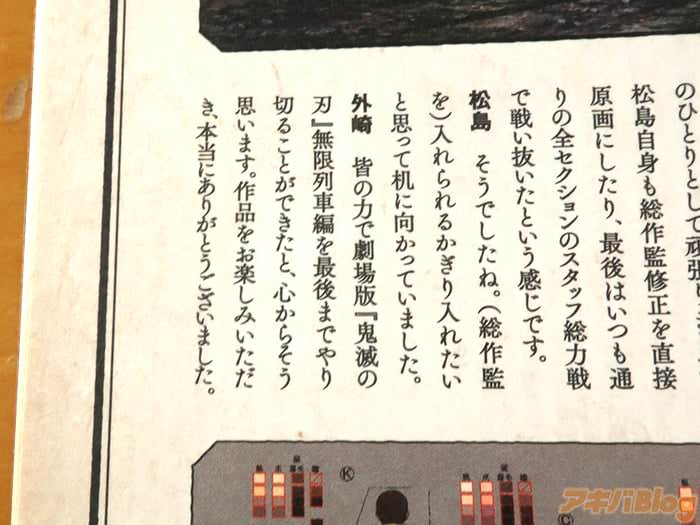 のひとりとして頑張
松島自身も総作監修正を直接
原画にしたり、最後はいつも通
りの全セクションのスタッフ総力戦
で戦い抜いたという感じです。
松島　そうでしたね。(総作監
を)入れられるかぎり入れたい
と思って机に向かっていました。
外崎　皆の力で劇場版『鬼滅の
刃』無限列車編を最後までやり
切ることができたと、心からそう
思います。作品をお楽しみいただ
き、本当にありがとうございました。
K
アキバBlog